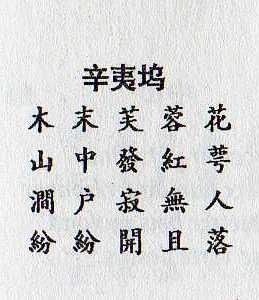 辛夷坞
木末芙蓉花
山中發紅萼
澗户寂無人
紛紛開且落